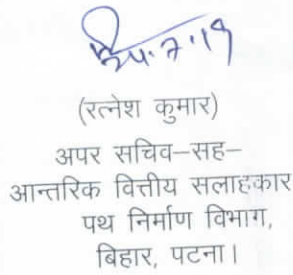 (रत्नेश कुमार)
अपर सचिव–सह–
आन्तरिक वित्तीय सलाहकार
पथ निर्माण विभाग,
बिहार, पटना।